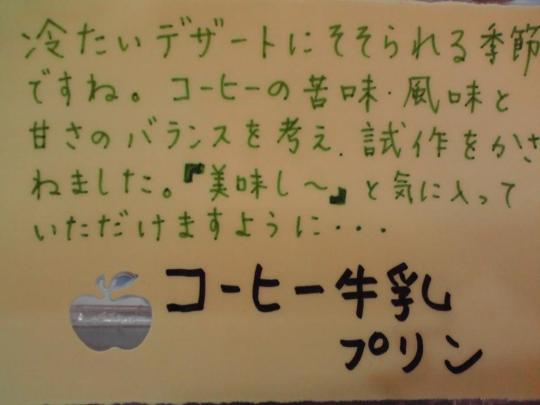 冷たいデザートにそそられる季節
ですね。コーヒーの苦味・風味と
甘さのバランスを考え、試作をかさ
ねました。『美味し～』と気に入って
いただけますように・・・
コーヒー牛乳
プリン